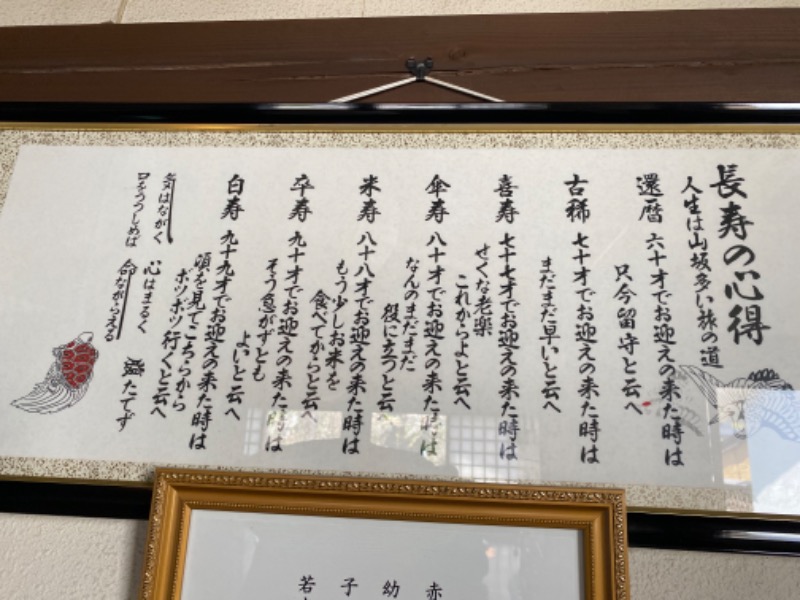 長寿の心得
人生は山坂多い旅の道
還暦 六十才でお迎えの来た時は
只今留守と云へ
古稀 七十才でお迎えの来た時は
まだまだ早いと云へ
喜寿 七十七才でお迎えの来た時は
せくな老楽
これからよと云へ
傘寿 八十才でお迎えの来た時は
なんのまだまだ
役に立つと云へ
米寿 八十八才でお迎えの来た時は
もう少しお米を
食べてからと云へ
卒寿 九十才でお迎えの来た時は
そう急がずとも
よいと云へ
白寿 九十九才でお迎えの来た時は
頃を見てこちらから
ボツボツ行くと云へ
気はながく 心はまるく たてず
口をつつしめば 命ながらえる
赤
幼
子
若